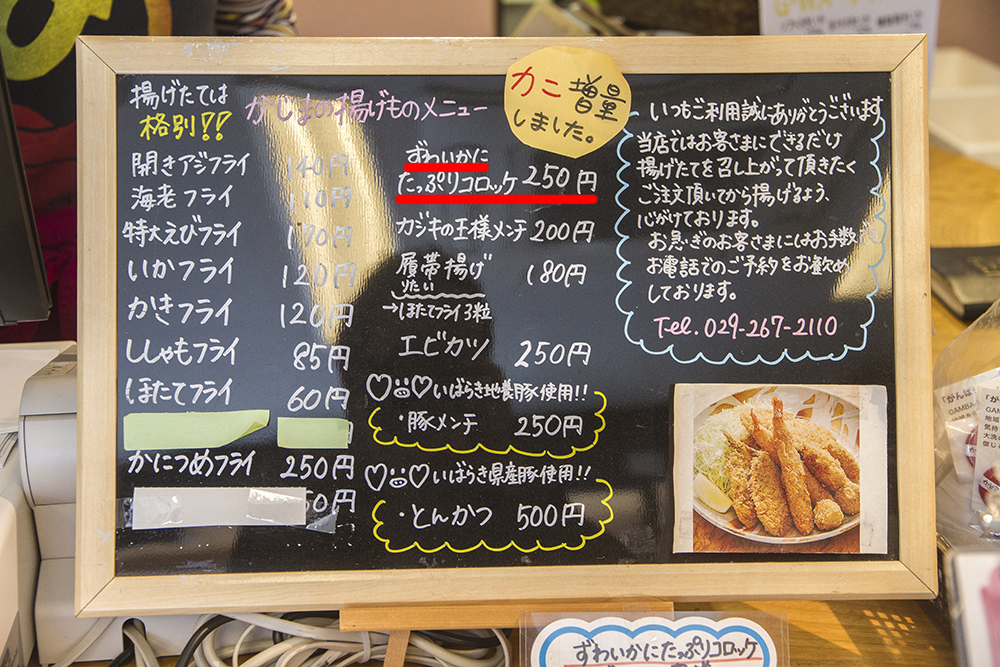 揚げたては
格別!!
かじまの揚げものメニュー
開きアジフライ 140円
海老フライ 110円
特大えびフライ 170円
いかフライ 120円
かきフライ 120円
ししゃもフライ 85円
ほたてフライ 60円
円
かにつめフライ 250円
50円
カニ増量
しました。
ずわいかに
たっぷりコロッケ 250円
カジキの王様メンチ 200円
履帯揚げ 180円
りたい
→ほたてフライ3粒
エビカツ 250円
いばらき地養豚使用!!
・豚メンチ 250円
いばらき県産豚使用!!
・とんかつ 500円
いつもご利用誠にありがとうございます
当店ではお客さまにできるだけ
揚げたてを召し上がって頂きたく
ご注文頂いてから揚げるよう、
心がけております。
お急ぎのお客さまにはお手数ですが
お電話でのご予約をお勧め
しております。
Tel.029-267-2110
ずわいかにたっぷりコロッケ